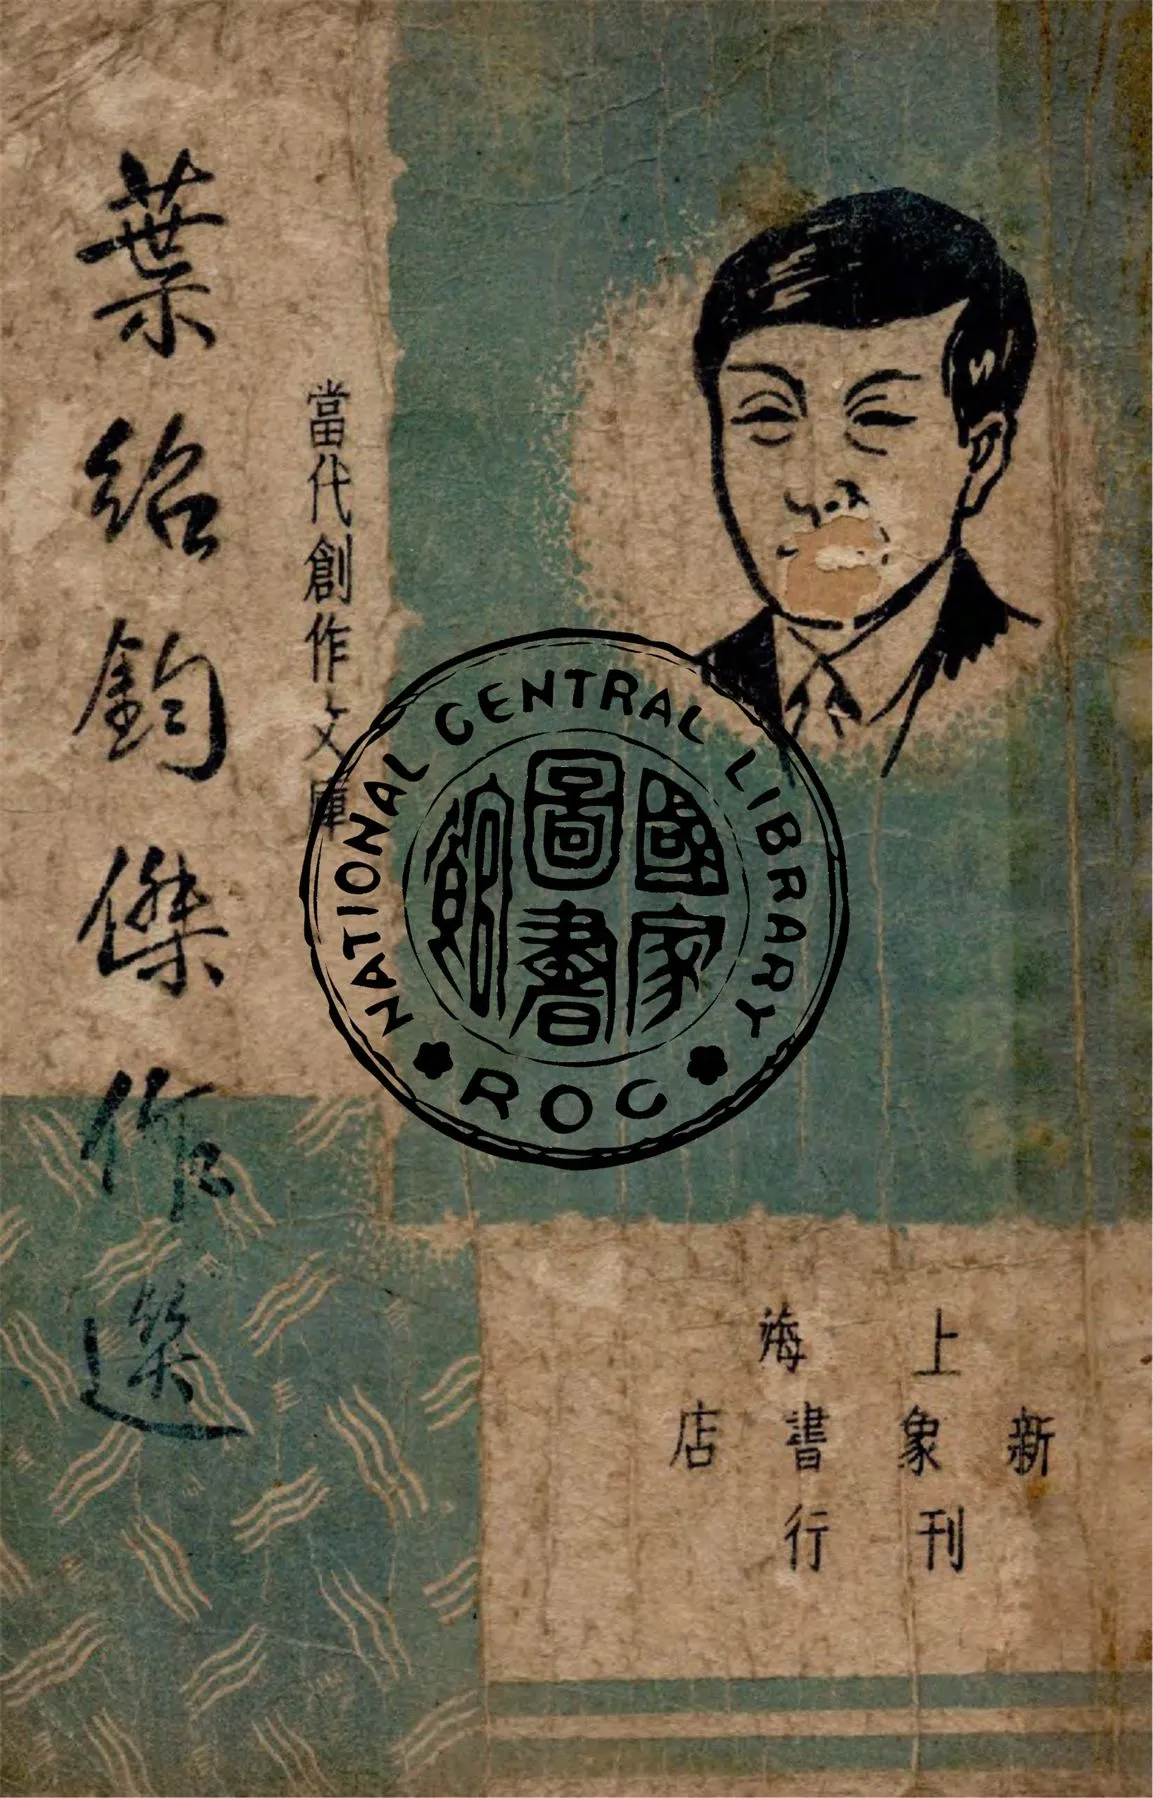 葉紹鈞傑作選
當代創作文庫
上海
新象書店
刊行
NATIONAL CENTRAL LIBRARY
國家圖書館
ROC